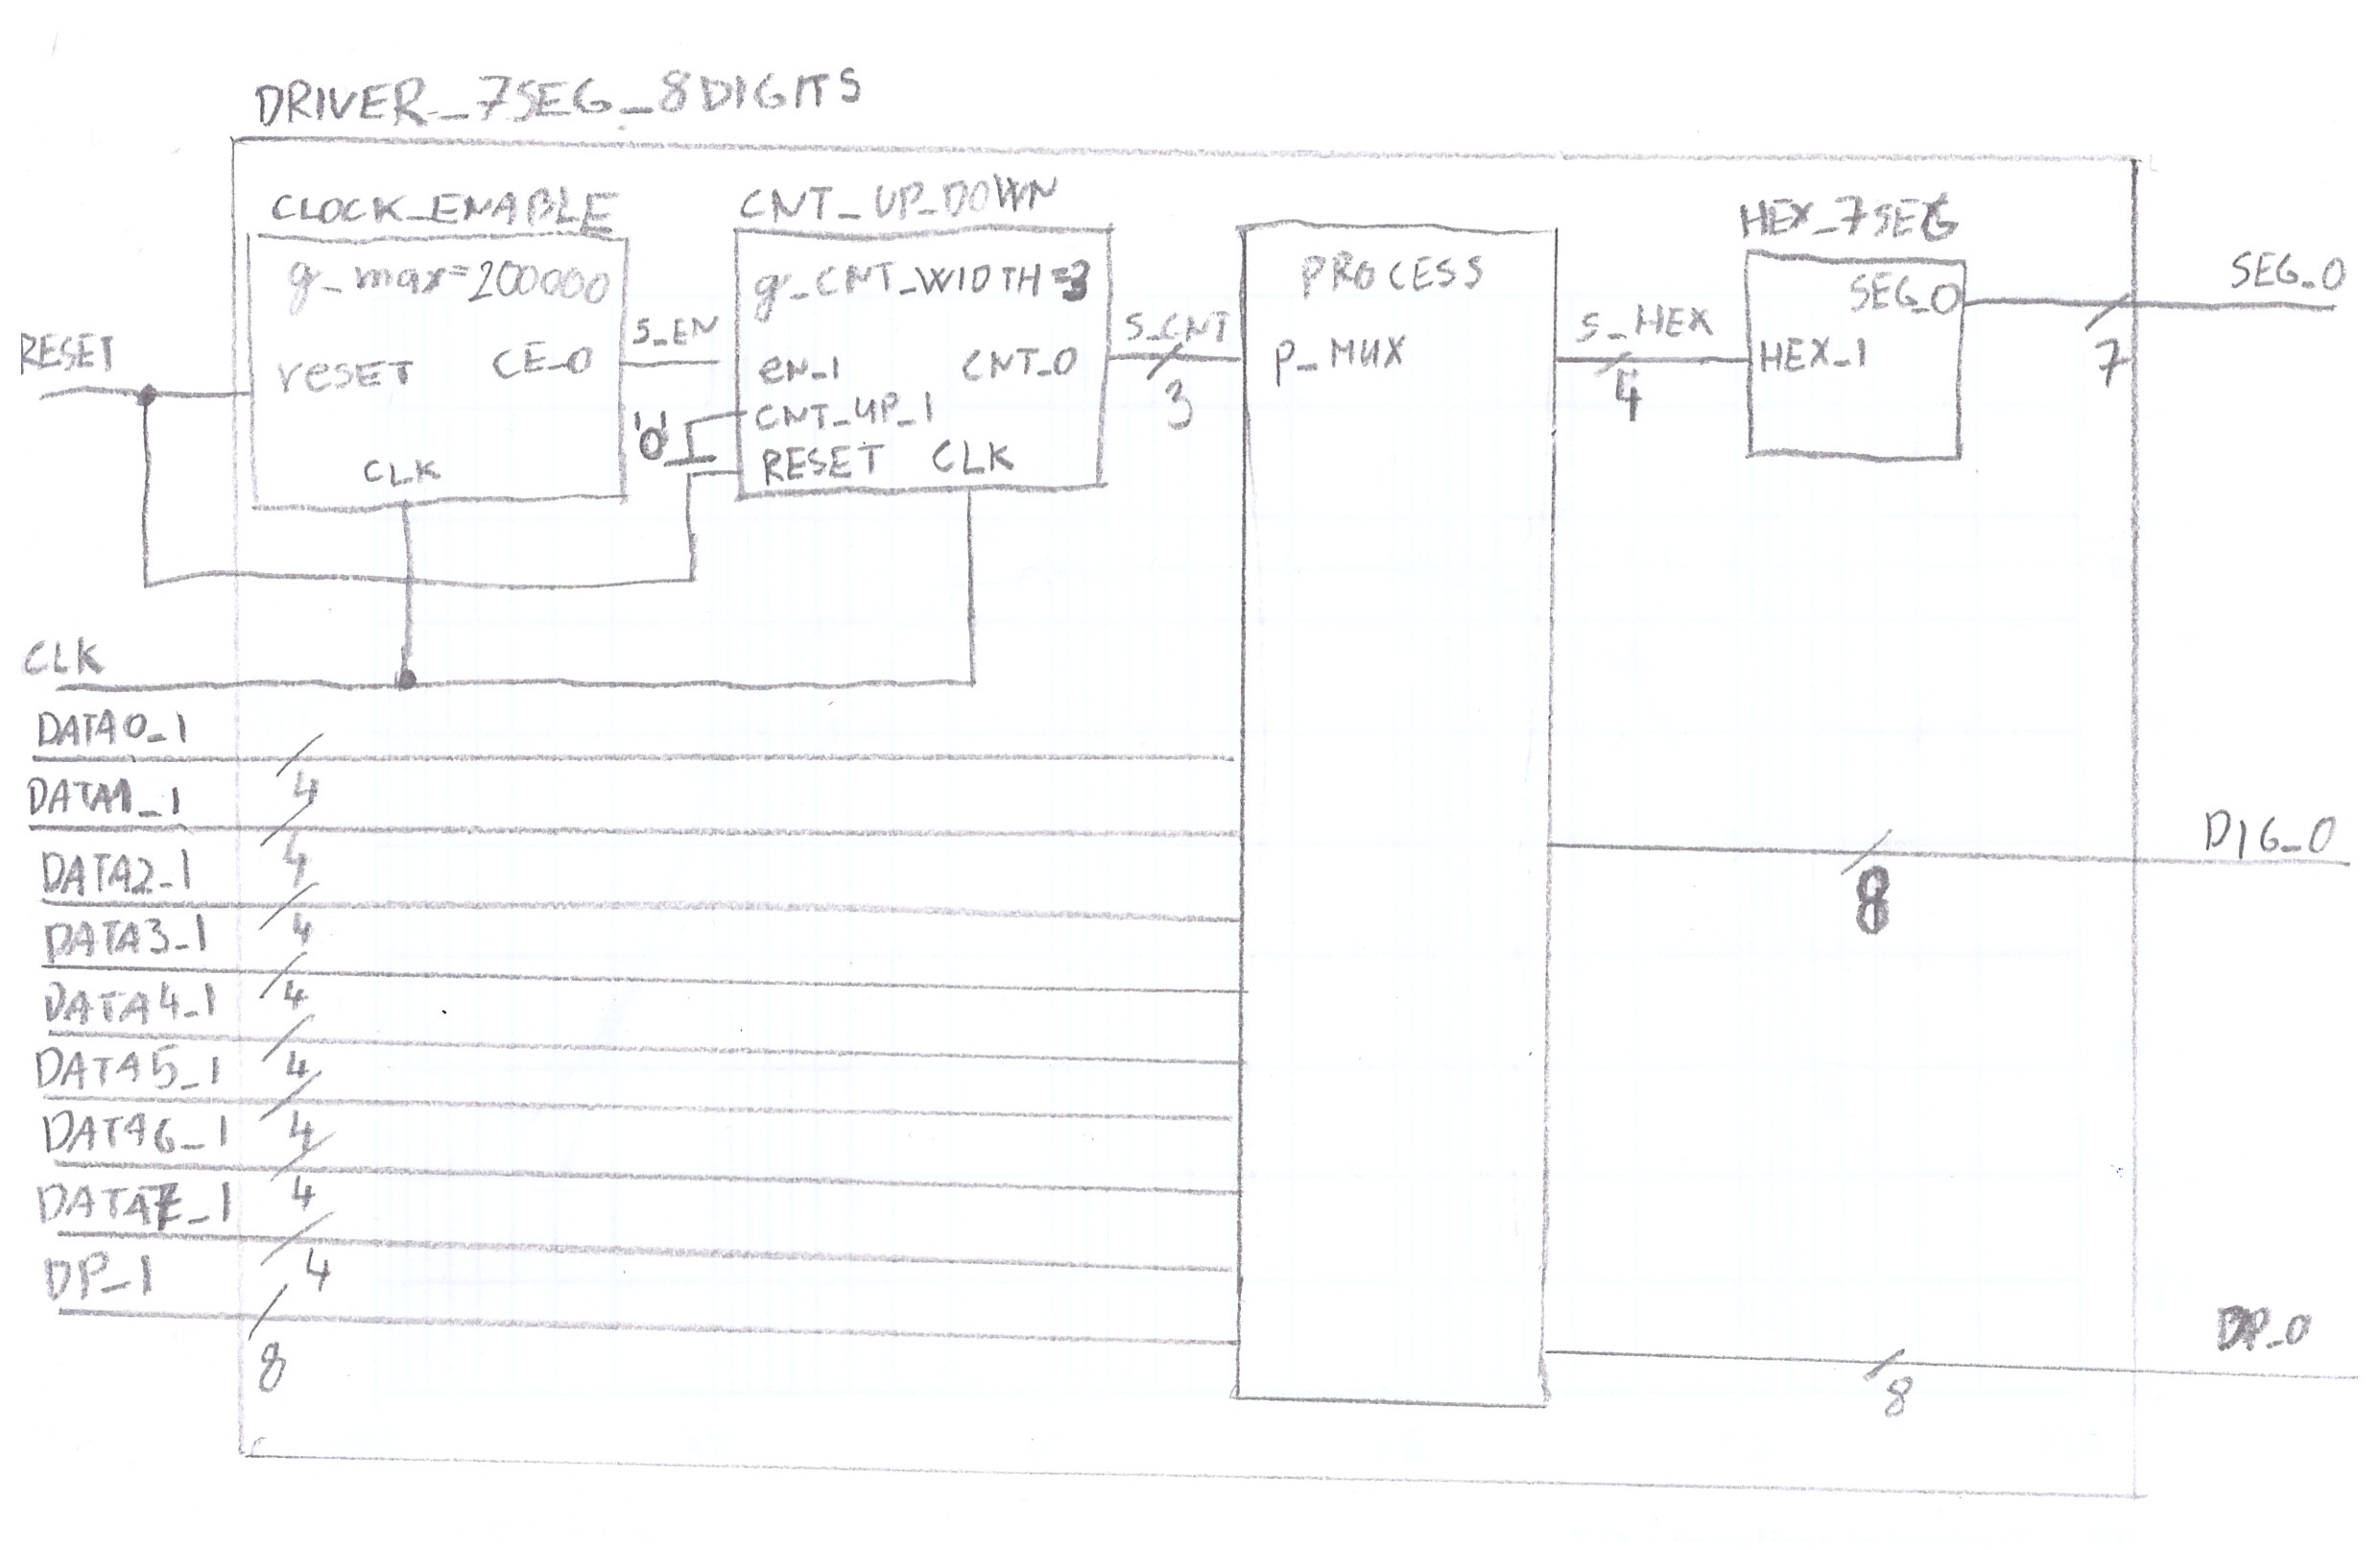 DRIVER_7SEG_8DIGITS
CLOCK_ENABLE
g_max=200000
reset
CE_0
CLK
S_EN
CNT_UP_DOWN
g_CNT_WIDTH=3
en_1
CNT_0
CNT_UP_1
RESET CLK
'0'
S_CNT
3
PROCESS
P_MUX
S_HEX
4
HEX_7SEG
SEG_0
HEX_1
SEG_0
7
RESET
CLK
DATA0_1
4
DATA1_1
4
DATA2_1
4
DATA3_1
4
DATA4_1
4
DATA5_1
4
DATA6_1
4
DATA7_1
4
DP_1
8
DIG_0
8
DP_0
8